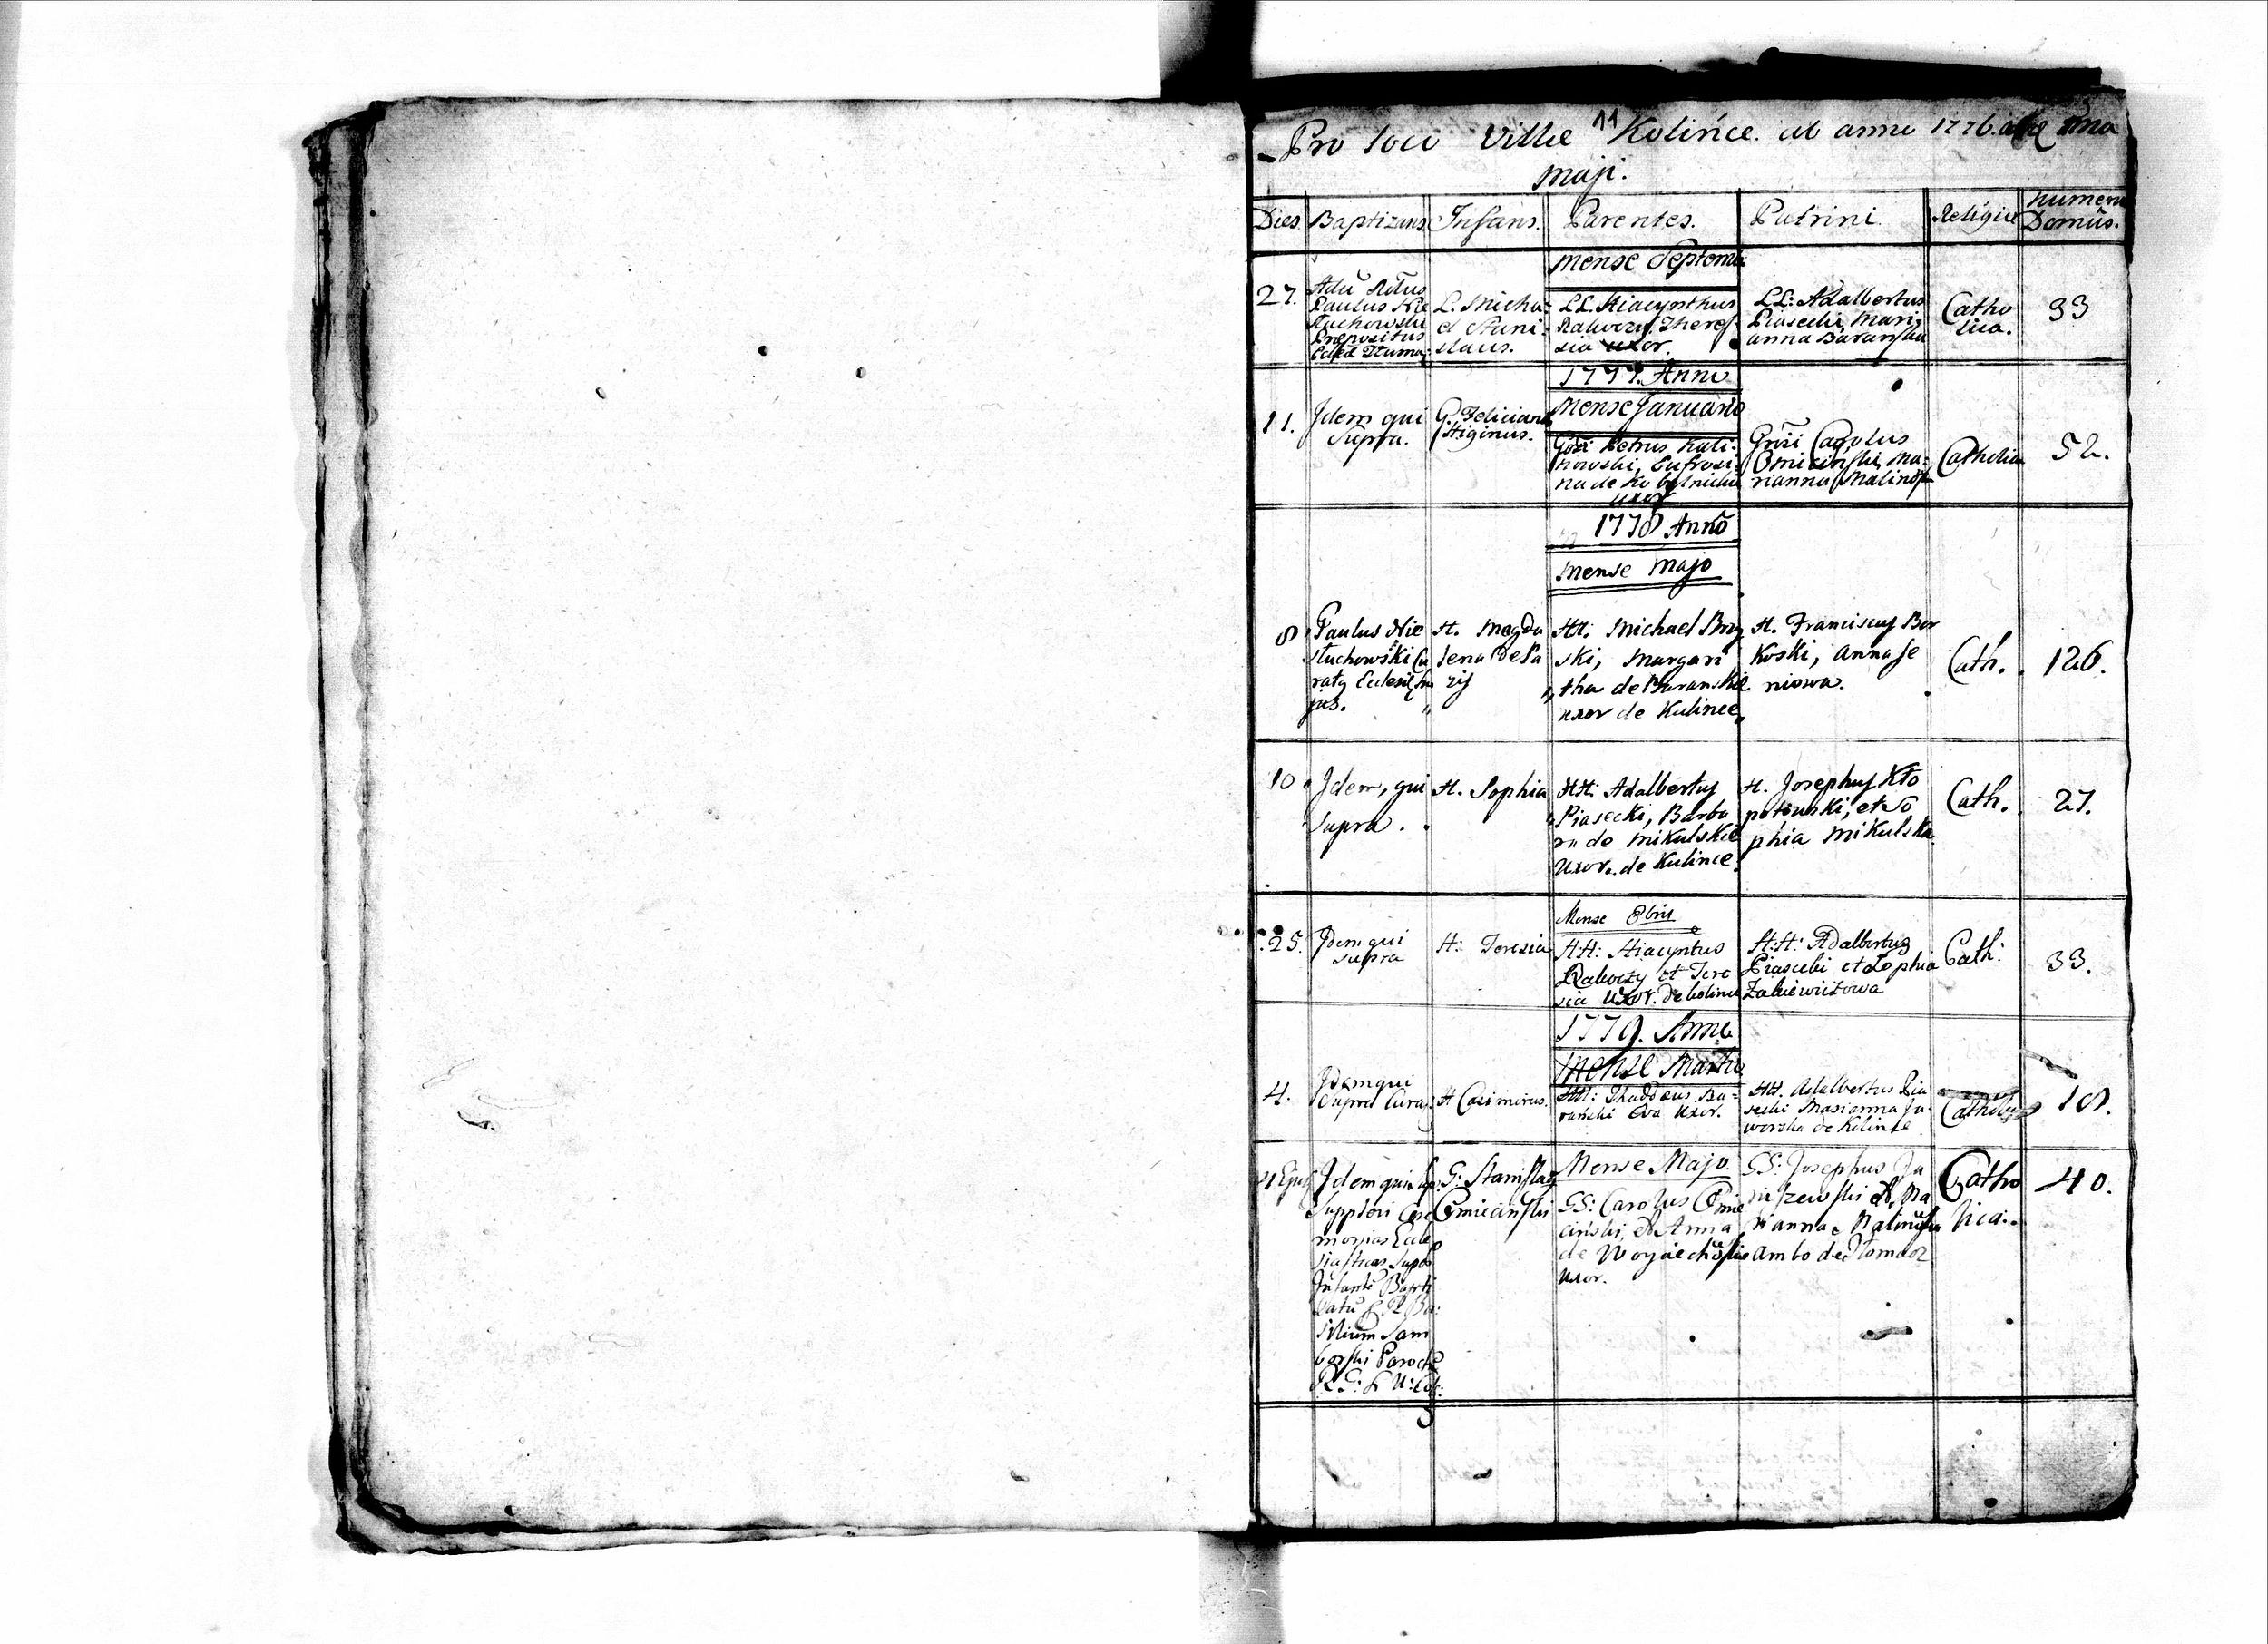 11
Pro loco Villæ Kolińce ab anno 1776. 
Maji.
Dies. Baptizans. Infans. Parentes. Patrini. Religio Numerus Domûs.
Mense Septemb
27.
Paulus Nie
słuchowski
Præpositus
L. Micha=
el
slaus.
LL. Hiacynthus
Rakoczy, Theres=
sia uxor.
LL: Adalbertus
Piasecki, Mari=
anna Baranska
Catho
lica.
33
1777. Anno
Mense Januario
11.
Idem qui
Supra.
G. Felicianus
Higinus.
Petrus Kali=
nowski, Eufrosi=
na de Kobylnicki
uxor
Carolus
Omiecinski, Ma=
rianna Malinosk
Catholica
52.
1778 Anno
Mense Majo
8
Paulus Nie
słuchowski Cu
ratg Ecclesiæ hu
jus.
H. Magda
lena de Pa
zij
HH: Michael Bry
ski, Margari
tha de Baranskie
uxor de Kulince
H. Franciscus Bor
koski, Anna Je
niowa.
Cath.
126.
10
Idem, qui
supra.
H. Sophia
HH: Adalbertus
Piasecki, Barba
ra de Mikulskie
Uxor. de Kulince.
H. Josephus Kło
potowski, et So
phia Mikulska
Cath.
27.
Mense 8bris
25.
Idem qui
supra
H: Teresia
H:H: Hiacyntus
Rakoczy et Tere
sia Uxor. de Kolince
H:H: Adalbertus
Piasecki et Sophia
Zakiewiczowa
Cath:
33.
1779. Anno
Mense Martio
4.
Idem qui
Supra Cura
H Casimirus.
HH: Thaddeus Ba=
rański Eva Uxor.
HH. Adalbertus Pia
secki Marianna Ja
worska de Kolince
Catholica
18.
Mense Majo.
Idem qui
Supplevi Cære
monias Eccle
siasticas
Infanti Bapti
zato
silium Sam
borski Paroch
G: Stanislaus
Omiecinski
GG: Carolus Omie
ciński, et Anna
de Woyciechoskie
Uxor.
GG: Josephus Ja
niszewski et Ma
rianna Kalinoska
ambo de Tłomacz
Catho
lica.
40.